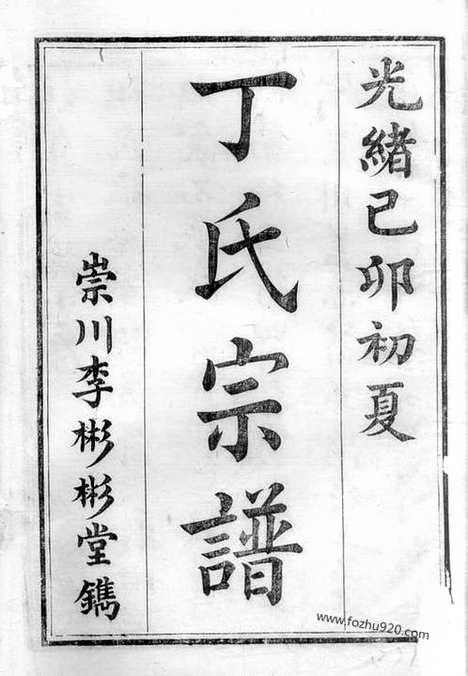 光緒己卯初夏
丁氏宗譜
崇川李彬彬堂鐫
www.fozhu920.com